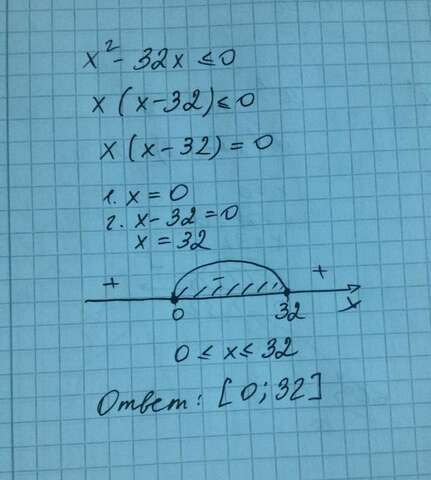 x² - 32x ≤ 0
x (x - 32) ≤ 0
x (x - 32) = 0
1. x = 0
2. x - 32 = 0
x = 32
+ - +
0 32 x
0 ≤ x ≤ 32
Ответ: [0; 32]